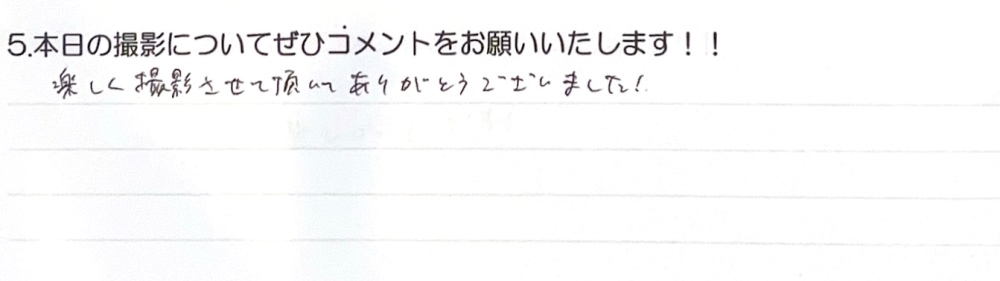 5.本日の撮影についてぜひコメントをお願いいたします！！
楽しく撮影させて頂いてありがとうございました！